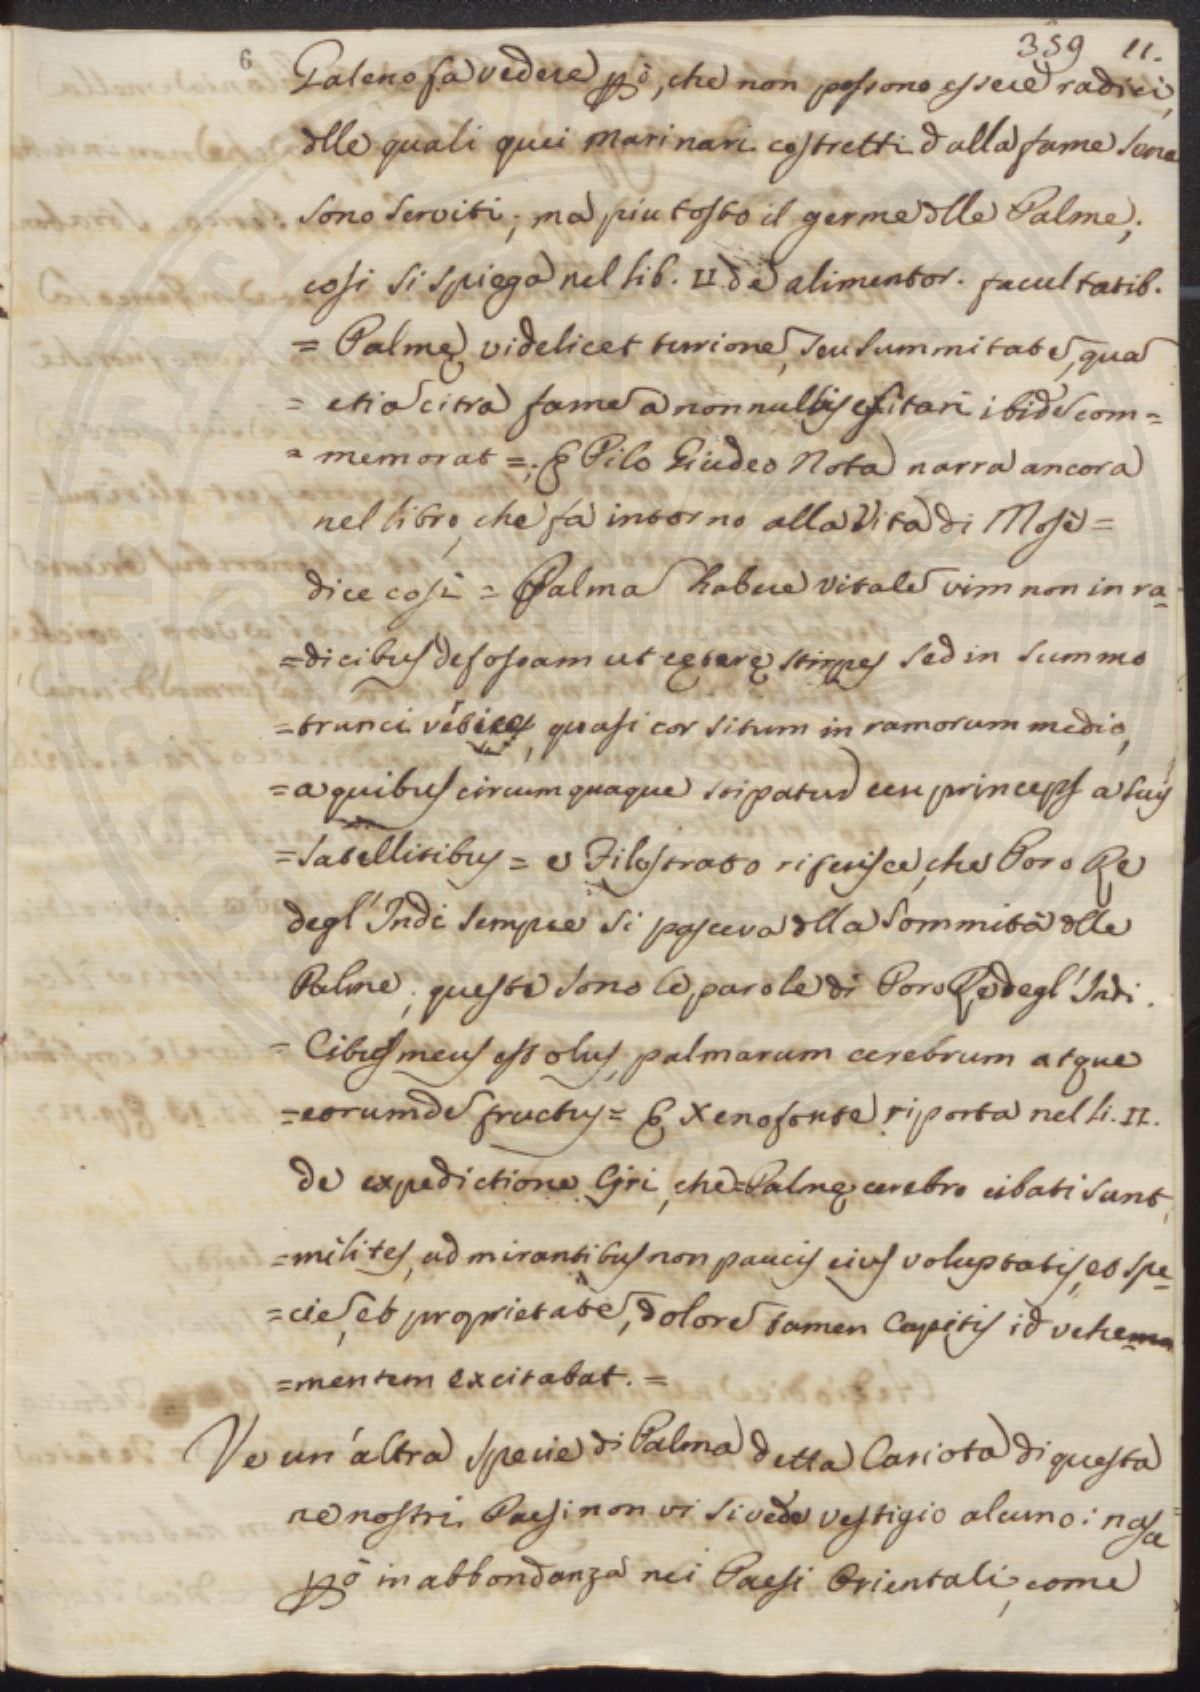 359 11.
6
Galeno fa vedere però, che non possono essere radici,
dlle quali quei Marinari costretti dalla fame sene
sono serviti; ma piu tosto il germe dlle Palme;
cosi si spiega nel lib. II de alimentor. facultatib.
= Palmę videlicet turionē, seu summitatē, quā
= etiā citra famē a nonnullis esitari ibidē com=
= memorat =; E Pilo Giudeo Nota narra ancora
nel libro, che fa intorno alla Vita di Mosè =
dice cosi = Palmā habere vitalē vim non in ra=
=dicibus defossam ut cęterę stirpes sed in summo
=trunci vertice, quasi cor situm in ramorum medio,
=a quibus circumquaque stipatur ceu princeps a suis
=satellitibus = e Filostrato riferisce, che Poro Re
degl'Indi sempre si pasceva dlla sommità dlle
Palme; queste sono le parole di Poro Re degl'Indi.
= Cibus meus est olus, palmarum cerebrum atque
=eorumdē fructus = E Xenofonte riporta nel li. II.
de expedictione Ciri, che = Palmę cerebro cibati sunt
=milites, admirantibus non paucis eius voluptatis, et spe=
=ciē, et proprietatē, dolorē tamen Capitis id vehe
=mentem excitabat. =
Ve un'altra specie di Palma detta Cariota di questa
ne nostri Paesi non vi si vede vestigio alcuno: nasce
però in abbondanza nei Paesi Orientali, come